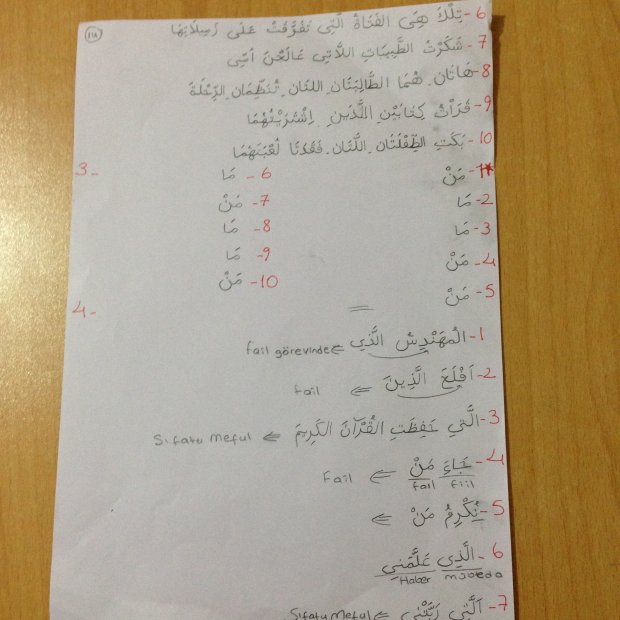 ٤١٨
6- تِلْكَ هِيَ الفَتَاةُ الَّتِي تَفَوَّقَتْ عَلَى زَمِيلَاتِهَا
7- شَكَرْتُ الطَّبِيبَاتِ اللَّاتِي عَالَجْنَ أُمِّي
8- هَاتَانِ هُمَا الطَّالِبَتَانِ اللتَانِ تُنَظِّمَانِ الرِّحْلَةَ
9- قَرَأْتُ كِتَابَيْنِ اللَّذَيْنِ اِشْتَرَيْتُهُمَا
10- بَكَتِ الطِّفْلَتَانِ اللَّتَانِ فَقَدَتَا لُعْبَتَهُمَا
3-
1- مَنْ 6- مَا
2- مَا 7- مَنْ
3- مَا 8- مَا
4- مَنْ 9- مَا
5- مَنْ 10- مَنْ
4-
1- الْمُهَنْدِسُ الَّذِي ⇐ fail görevinde
2- اَفْلَحَ الَّذِينَ ⇐ fail
3- الَّتِي حَفِظَتِ القُرْآنَ الكَرِيمَ ⇐ Sıfatu Meful
4- جَاءَ مَنْ ⇐ Fail
fiil fail
5- يُكْرِمُ مَنْ ⇐
6- الَّذِي عَلَّمَنِي
mübteda Haber
7- اَلَّتِي رَبَّتْنِي ⇐ Sıfatu Meful